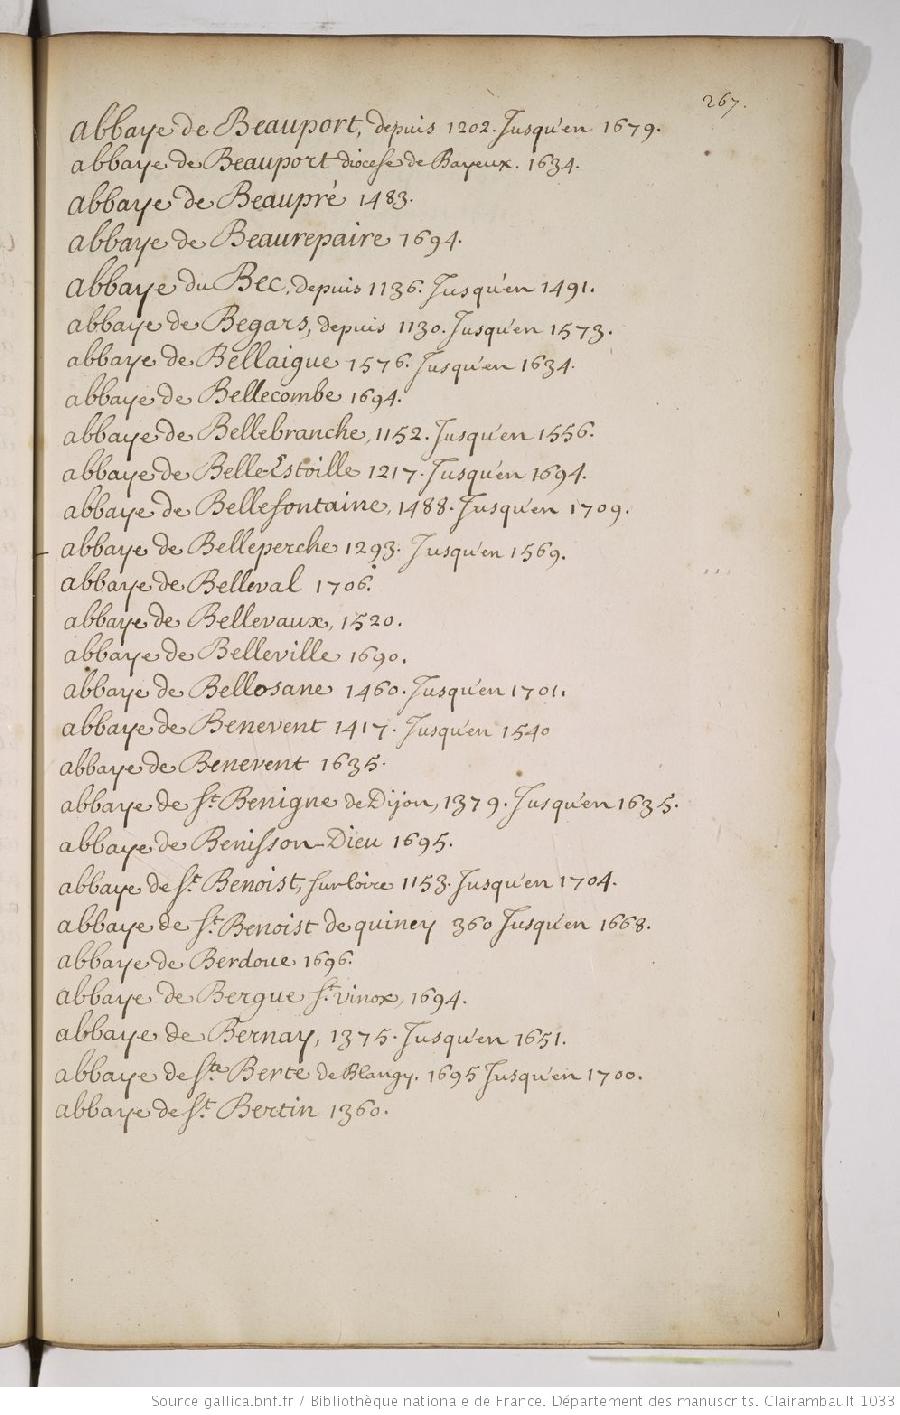 267.
abbaye de Beauport, depuis 1202. Jusqu'en 1679.
abbaye de Beauport diocese de Bayeux. 1634.
abbaye de Beaupré 1483.
abbaye de Beaurepaire 1694.
abbaye du Bec, depuis 1136. Jusqu'en 1491.
abbaye de Begars, depuis 1130. Jusqu'en 1573.
abbaye de Bellaigue 1576. Jusqu'en 1634.
abbaye de Bellecombe 1694.
abbaye de Bellebranche, 1152. Jusqu'en 1556.
abbaye de Belle-Estoille 1217. Jusqu'en 1694.
abbaye de Bellefontaine, 1488. Jusqu'en 1709.
abbaye de Belleperche 1293. Jusqu'en 1569.
abbaye de Belleval 1706.
abbaye de Bellevaux, 1520.
abbaye de Belleville 1690.
abbaye de Bellosane 1460. Jusqu'en 1701.
abbaye de Benevent 1417. Jusqu'en 1540
abbaye de Benevent 1635.
abbaye de St Benigne de Dijon, 1379. Jusqu'en 1635.
abbaye de Benisson-Dieu 1695.
abbaye de St Benoist, sur loire 1153. Jusqu'en 1704.
abbaye de St Benoist de quincy 360 Jusqu'en 1668.
abbaye de Berdoue 1696.
abbaye de Bergue St vinox, 1694.
abbaye de Bernay, 1375. Jusqu'en 1651.
abbaye de Ste Berte de Blangy. 1695 Jusqu'en 1700.
abbaye de St Bertin 1360.
Source gallica.bnf.fr / Bibliothèque nationale de France. Département des manuscrits. Clairambault 1033